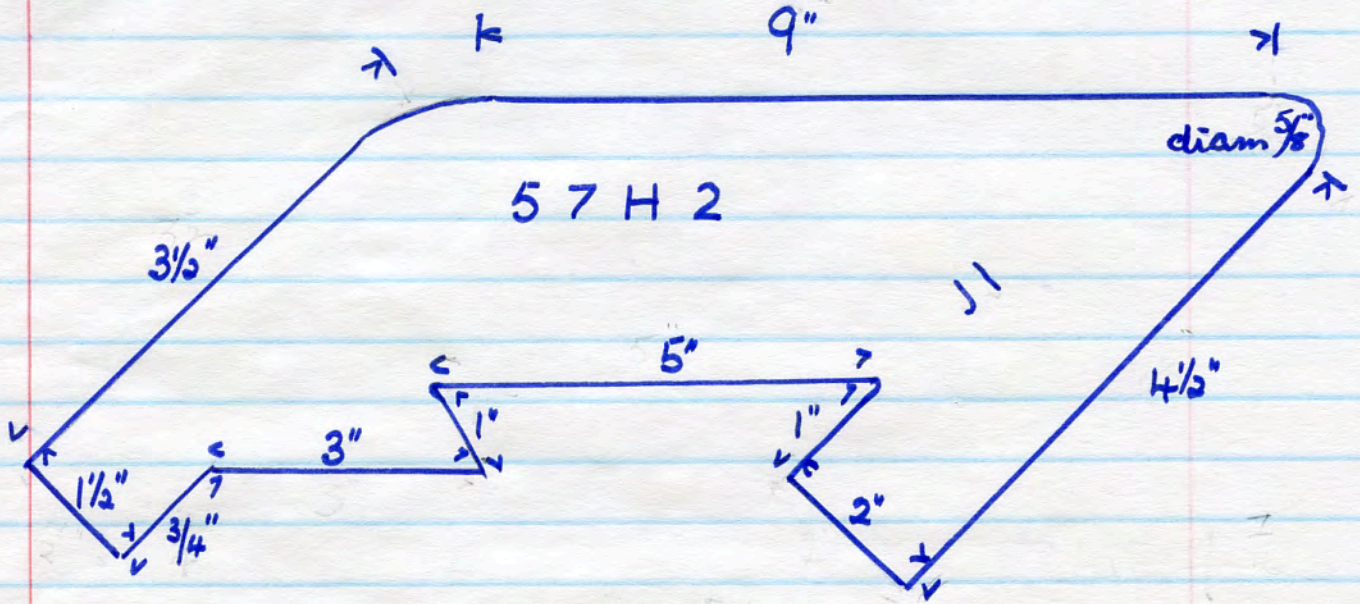 9"
diam 5/8"
57H2
3½"
5"
4½"
1"
1"
3"
1½"
3/4"
2"